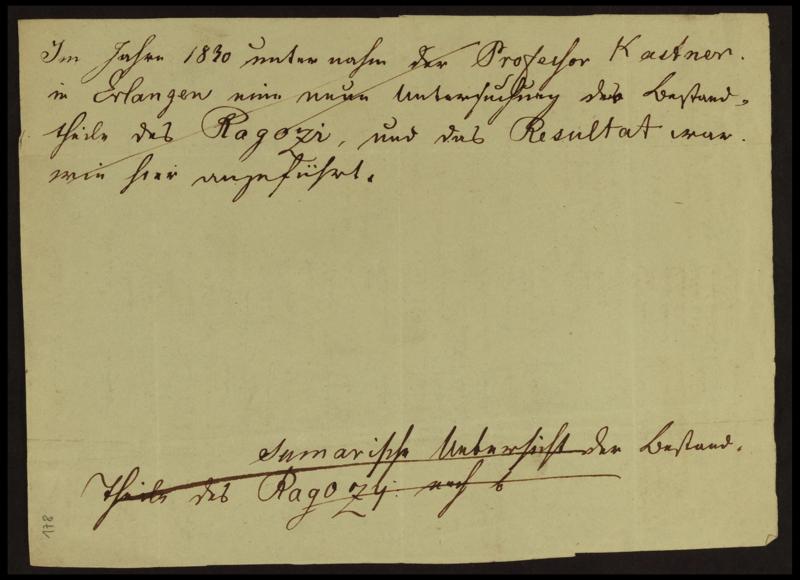 Im Jahre 1830 unternahm der Professor Kastner.
in Erlangen eine neue Untersuchung des Bestand-
theile des Ragozi, und das Resultat war.
wie hier angeführt.
Sumarische Uebersicht der Bestand-
Theile des Ragozy. nach
178